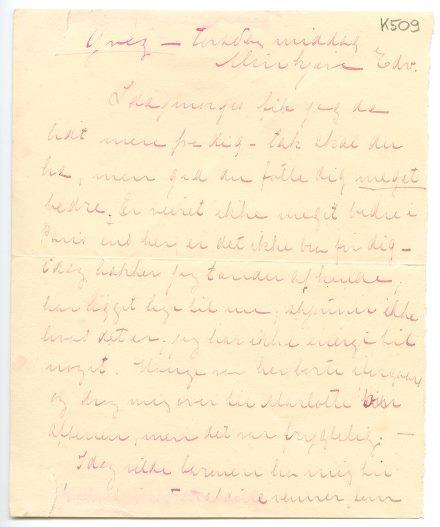 K509
Grez – torsdag middag
Min kjære Edv.
I dag morges fik jeg da
lidt mere fra dig – tak skal du
ha, men gid du følte dig meget
bedre. Er veiret ikke meget bedre i
Paris end her, er det ikke bra for dig –
idag hakker jeg tænder af kulde,
har ligget lige til nu, skjønner ikke
hvad det er. jeg har ikke energi til
noget. Konge var her borte igaar
og drog meg over til Marlotte
aftenen, men det var frygtelig. –
Idag vilde have mig til
venner som